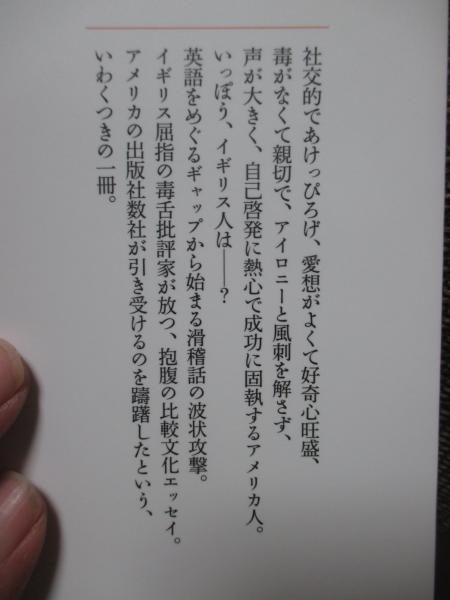 社交的であけっぴろげ、愛想がよくて好奇心旺盛、
毒がなくて親切で、アイロニーと風刺を解さず、
声が大きく、自己啓発に熱心で成功に固執するアメリカ人。
いっぽう、イギリス人は——?
英語をめぐるギャップから始まる滑稽話の波状攻撃。
イギリス屈指の毒舌批評家が放つ、抱腹の比較文化エッセイ。
アメリカの出版社数社が引き受けるのを躊躇したという、
いわくつきの一冊。